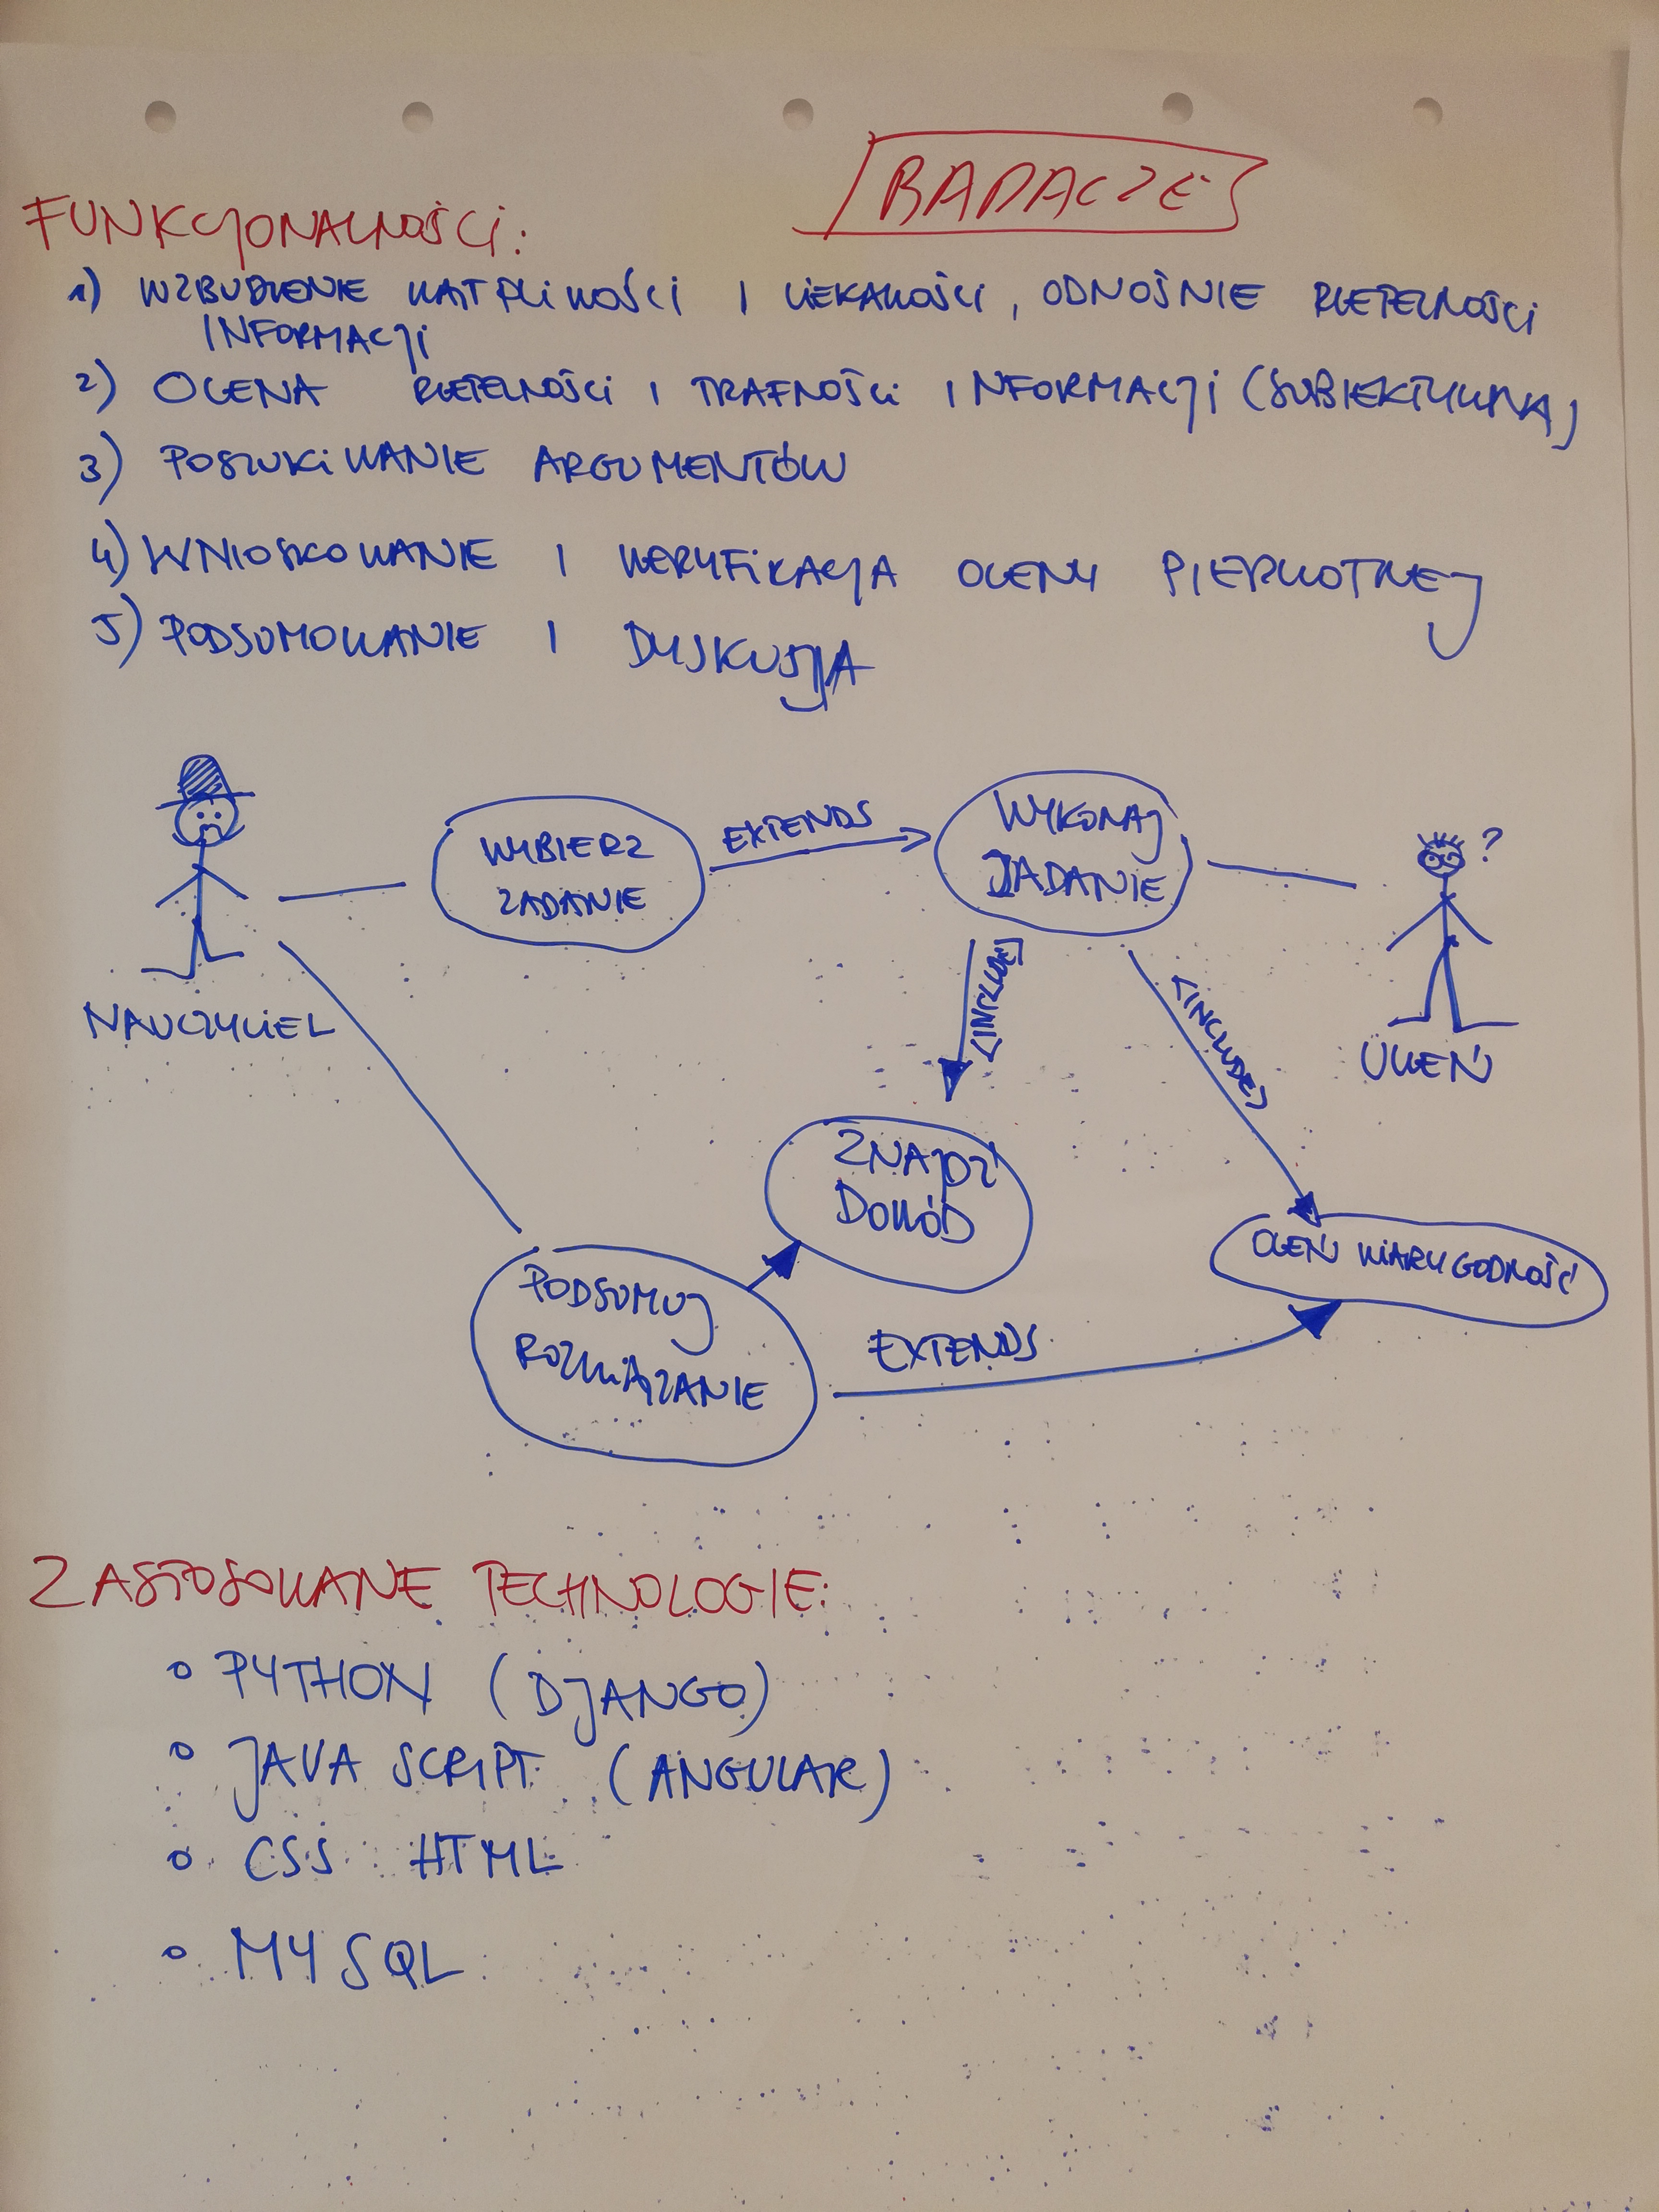 BADACZE
FUNKCJONALNOŚCI:
1) WZBUDZENIE WĄTPLIWOŚCI I CIEKAWOŚCI, ODNOŚNIE RZETELNOŚCI
INFORMACJI
2) OCENA RZETELNOŚCI I TRAFNOŚCI INFORMACJI (SUBIEKTYWNA)
3) POSZUKIWANIE ARGUMENTÓW
4) WNIOSKOWANIE I WERYFIKACJA OCENY PIERWOTNEJ
5) PODSUMOWANIE I DYSKUSJA
WYBIERZ
ZADANIE
EXTENDS
WYKONAJ
ZADANIE
?
NAUCZYCIEL
<INCLUDE>
<INCLUDE>
UCZEŃ
ZNAJDŹ
DOWÓD
OCEŃ WIARYGODNOŚĆ
PODSUMUJ
ROZWIĄZANIE
EXTENDS
ZASTOSOWANE TECHNOLOGIE:
○ PYTHON (DJANGO)
○ JAVA SCRIPT (ANGULAR)
○ CSS HTML
○ MY SQL